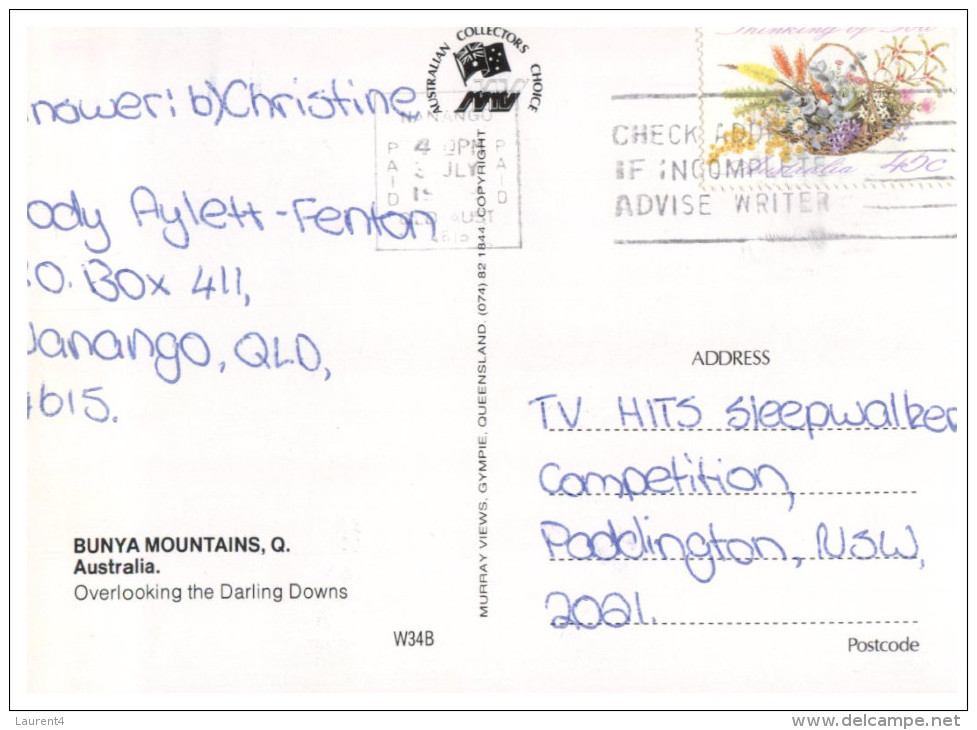 AUSTRALIAN COLLECTORS CHOICE
Thinking of You
Australia 45c
CHECK ADD
IF INCOMPLETE
ADVISE WRITER
NANANGO
PAID
4 PM
JULY
19
PAID
QLD AUST
4615
nswer: b) Christine
ody Aylett-Fenton
.O. Box 411,
Nanango, QLD,
4615.
BUNYA MOUNTAINS, Q.
Australia.
Overlooking the Darling Downs
W34B
MURRAY VIEWS, GYMPIE, QUEENSLAND. (074) 82 1844 COPYRIGHT
ADDRESS
TV HITS Sleepwalker
Competition,
Paddington, NSW,
2021.
Postcode
Laurent4
www.delcampe.net